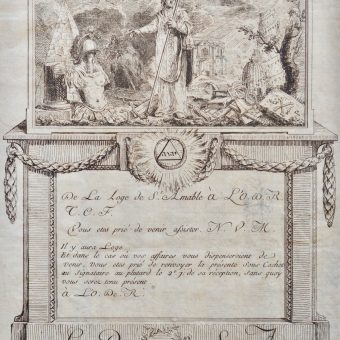 De La Loge de S. Amable à L'O. D. R.
T. C. F.
Vous etes prié de venir assister. N. V. M.
Il y aura Loge
Et dans le cas ou vos affaires vous dispenseroient de
venir, Vous etes prié de renvoyer la présente Sous Cachet
au Signataire au plutard le 2e j. de sa réception, Sans quoy
vous serez tenu présent
à L'O. De R.